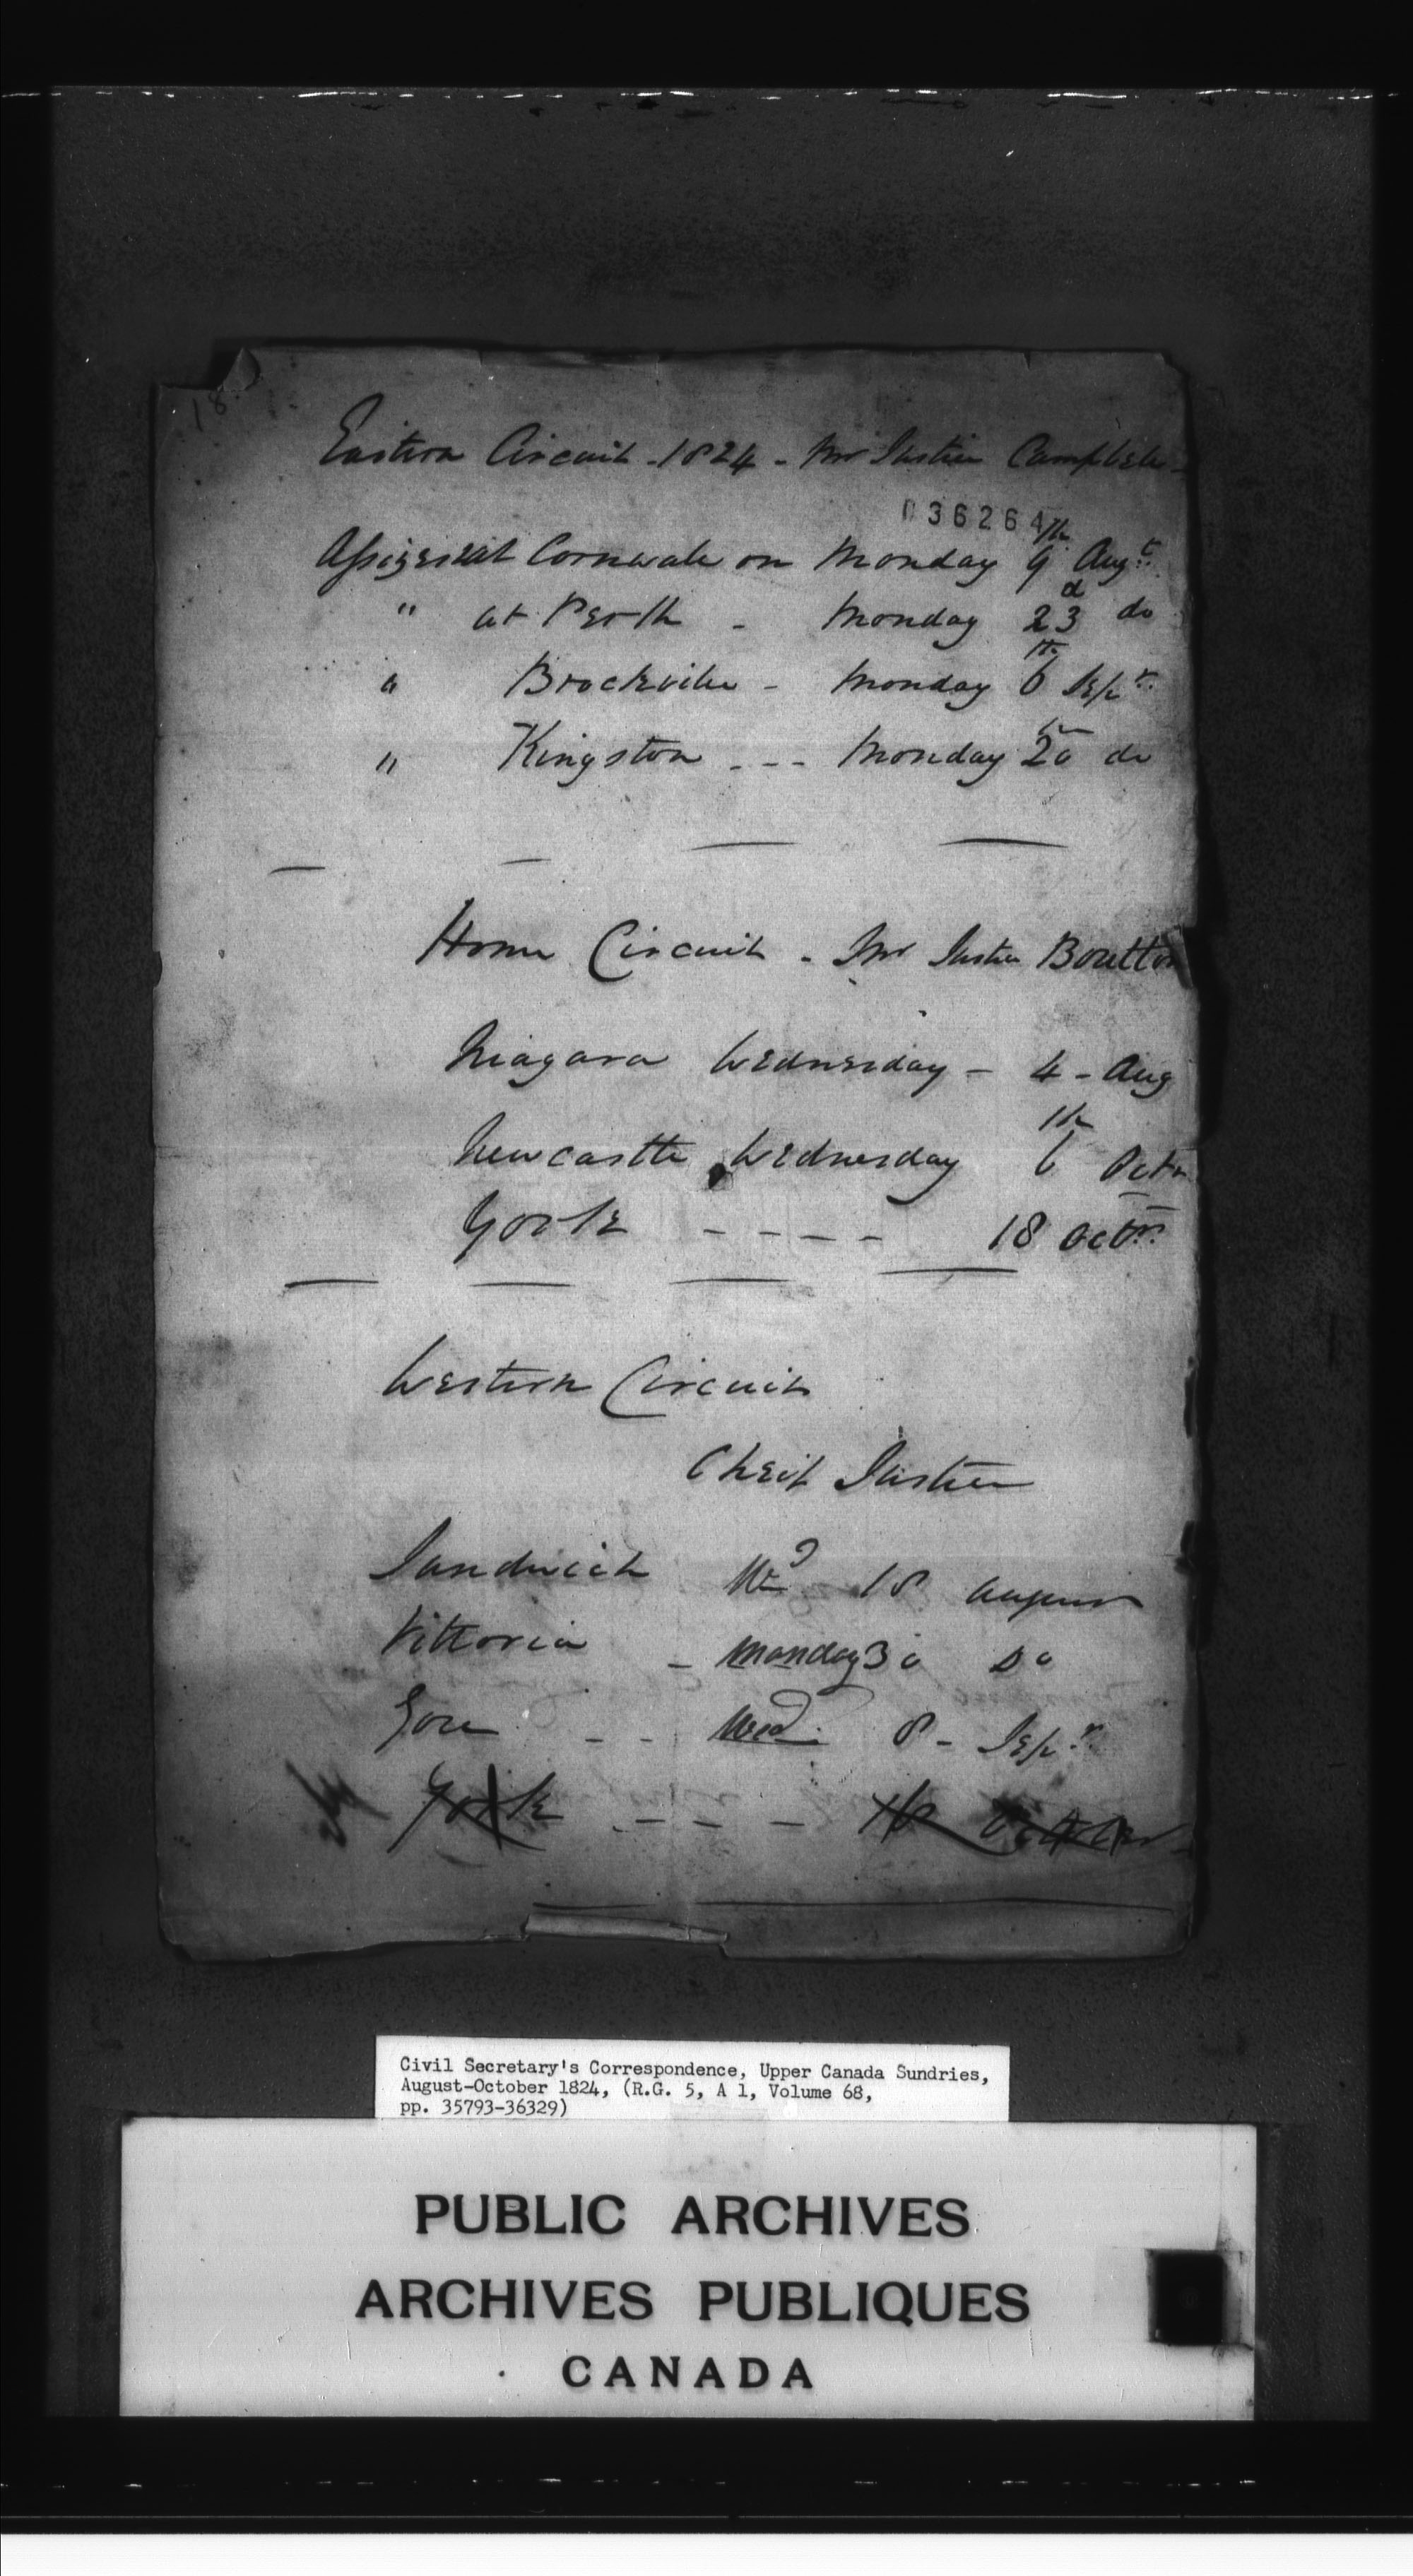 18
Eastern Circuit - 1824 - Mr Justice Campbell -
036264
Assizes at Cornwall on Monday 9th Augt
" at Perth - Monday 23d do
" Brockville - Monday 6th Sepr
" Kingston - - - Monday 20th do
Home Circuit - Mr Justice Boulton
Niagara Wednesday - 4 - Aug
Newcastle Wednesday 6th Octr
York - - - - 18 Octr
Western Circuit
Cheif Justice
Sandwich Wed 18 August
Vittoria - Monday 30 Do
Gore - - Wed. 8 - Sepr
York - - - - 18 October
Civil Secretary's Correspondence, Upper Canada Sundries,
August-October 1824, (R.G. 5, A 1, Volume 68,
pp. 35793-36329)
PUBLIC ARCHIVES
ARCHIVES PUBLIQUES
CANADA